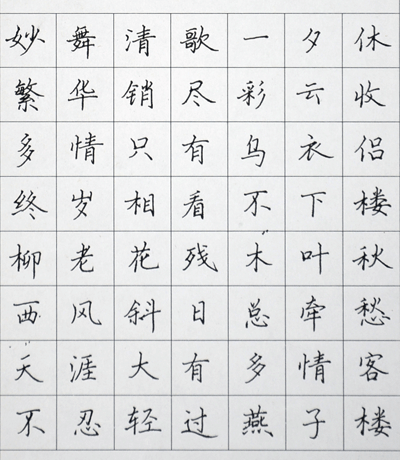 妙舞清歌一夕休
繁华销尽彩云收
多情只有乌衣侣
终岁相看不下楼
柳老花残木叶秋
西风斜日总牵愁
天涯大有多情客
不忍轻过燕子楼